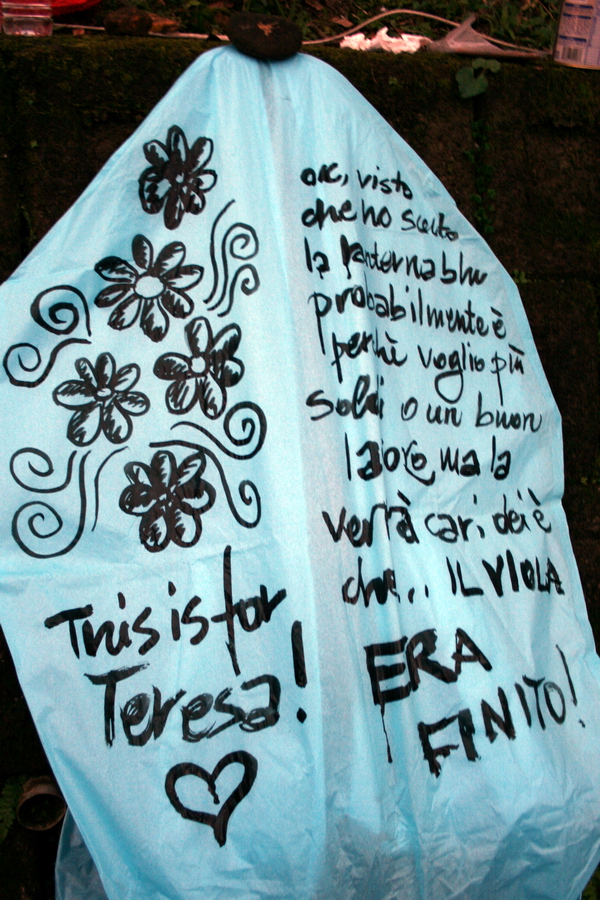 This is for
Teresa!
ok, visto
che ho scelto
la lanterna blu
probabilmente è
perchè voglio più
soldi o un buon
lavoro, ma la
verrà cari dei è
che.. IL VIOLA
ERA
FINITO!